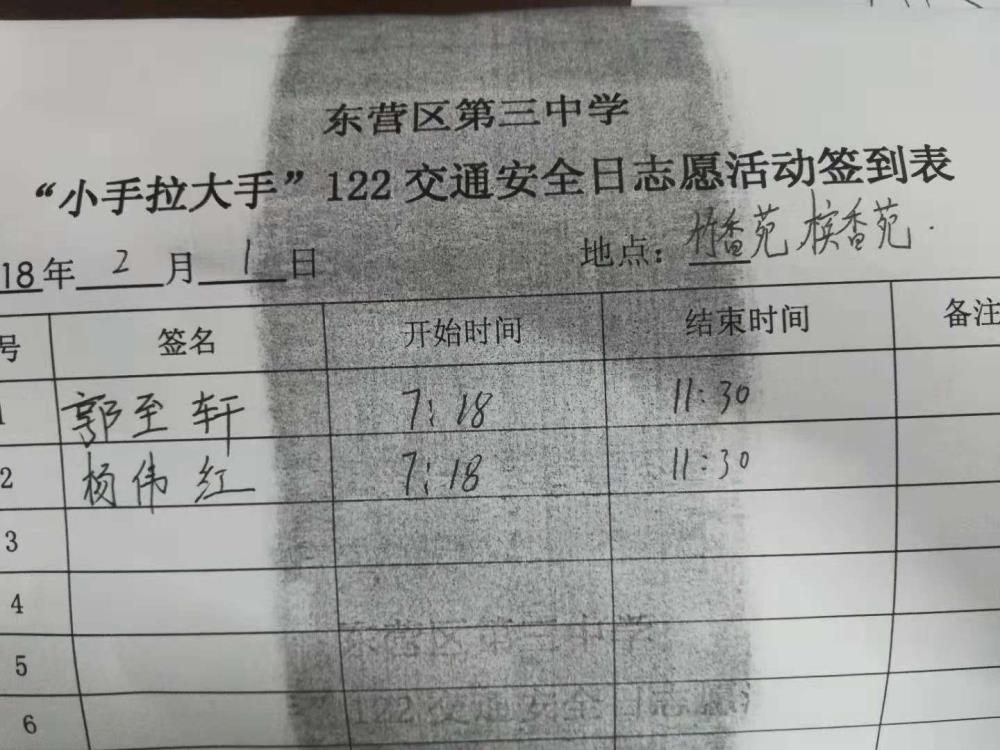 东营区第三中学
“小手拉大手”122交通安全日志愿活动签到表
18年 2 月 1 日 地点：竹香苑 槟香苑.
号 签名 开始时间 结束时间 备注
1 郭至轩 7:18 11:30
2 杨伟红 7:18 11:30
3
4
东营区第三中学
5
122交通安全日志愿
6